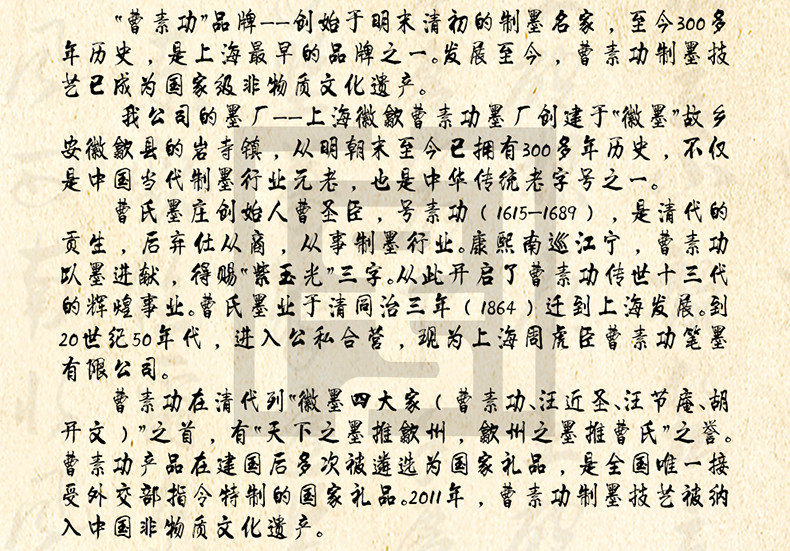 "曹素功"品牌--创始于明末清初的制墨名家，至今300多
年历史，是上海最早的品牌之一。发展至今，曹素功制墨技
艺已成为国家级非物质文化遗产。
我公司的墨厂--上海徽歙曹素功墨厂创建于"徽墨"故乡
安徽歙县的岩寺镇，从明朝末至今已拥有300多年历史，不仅
是中国当代制墨行业元老，也是中华传统老字号之一。
曹氏墨庄创始人曹圣臣，号素功（1615—1689），是清代的
贡生，后弃仕从商，从事制墨行业。康熙南巡江宁，曹素功
以墨进献，得赐"紫玉光"三字。从此开启了曹素功传世十三代
的辉煌事业。曹氏墨业于清同治三年（1864）迁到上海发展。到
20世纪50年代，进入公私合营，现为上海周虎臣曹素功笔墨
有限公司。
曹素功在清代列"徽墨四大家（曹素功、汪近圣、汪节庵、胡
开文）"之首，有"天下之墨推歙州，歙州之墨推曹氏"之誉。
曹素功产品在建国后多次被遴选为国家礼品，是全国唯一接
受外交部指令特制的国家礼品。2011年，曹素功制墨技艺被纳
入中国非物质文化遗产。